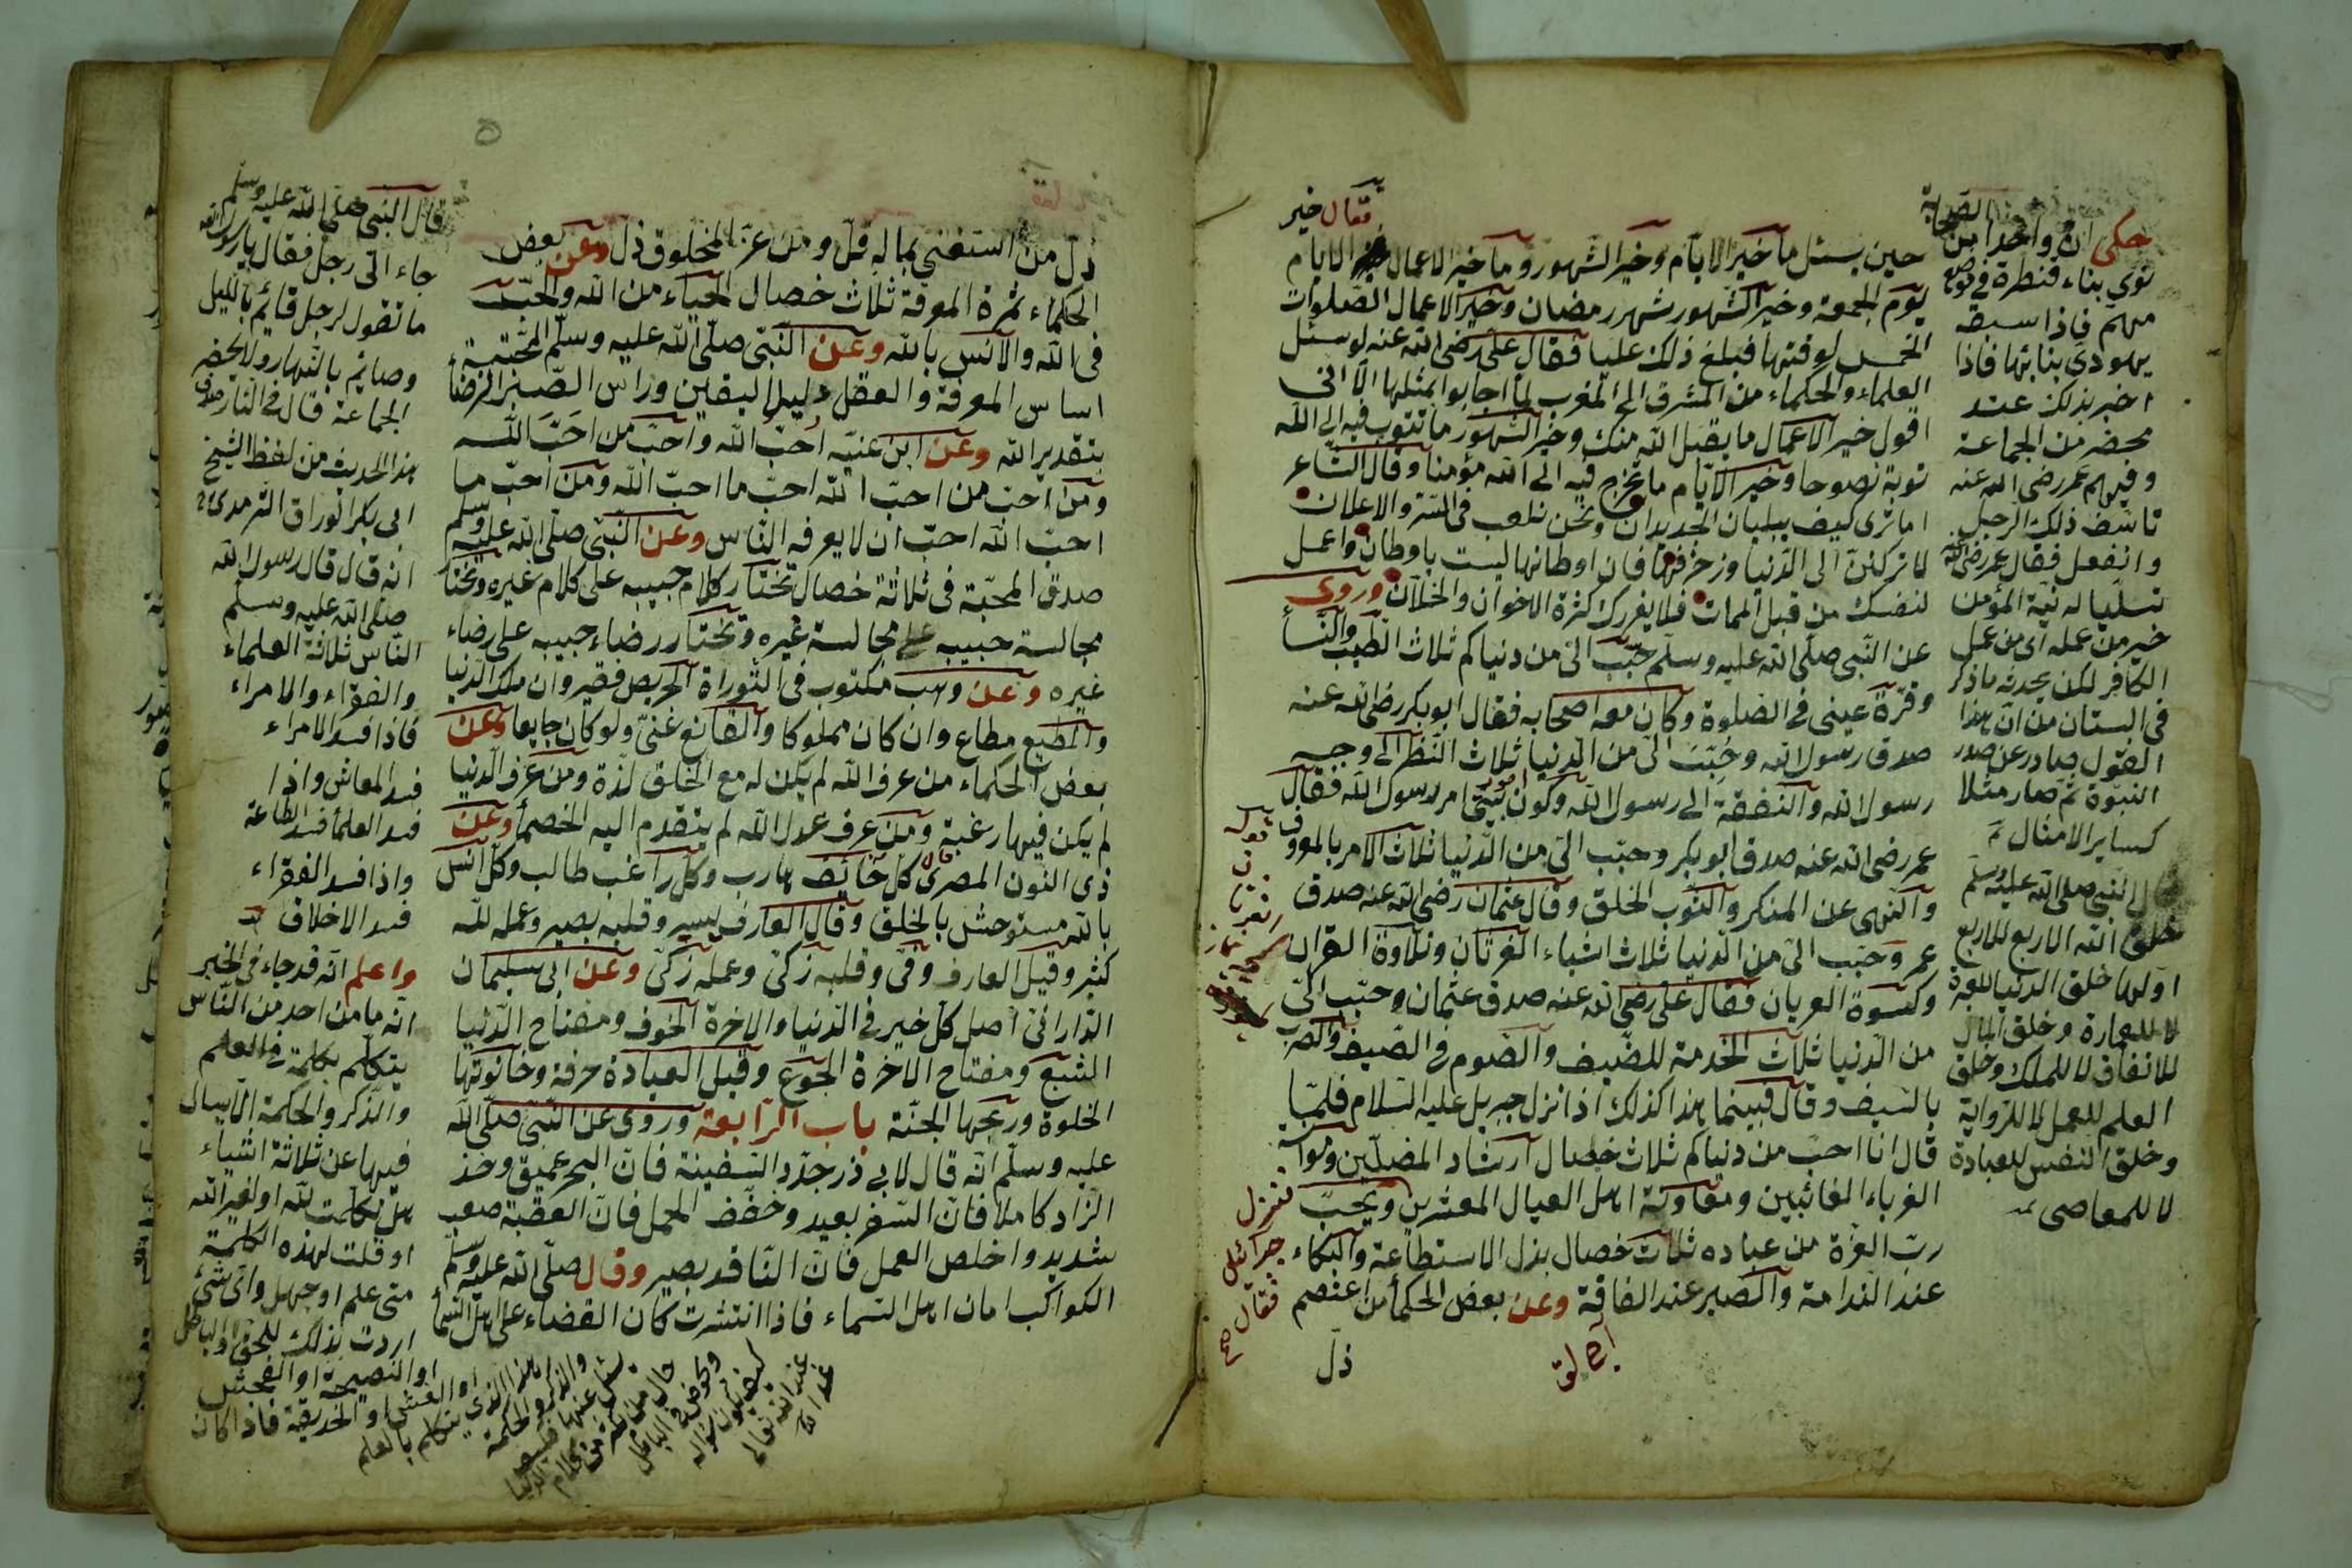 فقال خير
حين يسئل ما خير الايام وخير الشهور وما خير الاعمال الايام
يوم الجمعة وخير الشهور شهر رمضان وخير الاعمال الصلوات
الخمس لوقتها فبلغ ذلك عليا فقال على رضى الله عنه لو سئل
العلماء والحكماء من المشرق الى المغرب لما اجابوا بمثلها الا انى
اقول خير الاعمال ما يقبل الله منك وخير الشهور ما تتوب فيه الى الله
توبة نصوحا وخير الايام ما تخرج فيه الى الله مؤمنا وقال الشاعر
اما ترى كيف يبليان الجديدان ونحن نلعب فى السر والاعلان
لا تركنن الى الدنيا وزخرفها فان اوطانها ليست باوطان واعمل
لنفسك من قبل الممات فلا يغررك كثرة الاخوان والخلان وروى
عن النبى صلى الله عليه وسلم حبب الى من دنياكم ثلاث الطيب والنسأ
وقرة عينى فى الصلوة وكان معه اصحابه فقال ابو بكر رضى الله عنه
صدق رسول الله وحببت الى من الدنيا ثلاث النظر الى وجه
رسول الله والنفقة الى رسول الله وكون بنتى امر لرسول الله فقال
عمر رضى الله عنه صدق ابو بكر وحبب الى من الدنيا ثلاث الامر بالمعروف
والنهى عن المنكر والثوب الخلق وقال عثمان رضى الله عنه صدق
عمر وحبب الى من الدنيا ثلاث اشياء الغرثان وتلاوة القران
وكسوة العريان فقال على رضى الله عنه صدق عثمان وحبب الى
من الدنيا ثلاث الخدمة للضيف والصوم فى الصيف والضرب
بالسيف وقال فبينما هذا كذلك اذا نزل جبريل عليه السلام فلما
قال انا احب من دنياكم ثلاث خصال ارشاد المضلين ومؤانسة
الغرباء الغائبين ومعاونة اهل العيال المعشرين ويحب
رب العزة من عباده ثلاث خصال بذل الاستطاعة والبكاء
عند الندامة والصبر عند الفاقة وعن بعض الحكمأ من اعتصم
ذل
حكى ان واحدا من الصحابة
نوى بناء قنطرة فى موضع
مهم فاذا سبقه
يهودى بنائها فاذا
اخبر بذلك عند
محضر من الجماعة
وفيهم عمر رضى الله عنه
تاسف ذلك الرجل
وانفعل فقال عمر رضى الله عنه
تسليا له نية المؤمن
خير من عمله اى من عمل
الكافر لكن يحدثه ما ذكر
فى البستان من ان هذا
القول صادر عن صدر
النبوة ثم صار مثلا
كساير الامثال
قال النبى صلى الله عليه وسلم
خلق الله الاربع للاربع
اولها خلق الدنيا للعبرة
لا للعمارة وخلق المال
للانفاق لا للملك وخلق
العلم للعمل لا للرواية
وخلق النفس للعبادة
لا للمعاصى
فنزل
جبرائيل
فقال
ذل من استغنى بماله قل ومن عز المخلوق ذل وعن بعض
الحكماء ثمرة المعرفة ثلاث خصال الحياء من الله والحب
فى الله والانس بالله وعن النبى صلى الله عليه وسلم المحبة
اساس المعرفة والعقل دليل اليقين وراس الصبر الرضأ
بتقدير الله وعن ابن عنيه احب الله واحب من احب الله
ومن احب من احب الله احب ما احب الله ومن احب ما
احب الله احب ان لا يعرفه الناس وعن النبى صلى الله عليه وسلم
صدق المحبة فى ثلاثة خصال تختار كلام حبيبه على كلام غيره وتختار
مجالسة حبيبه على مجالسة غيره وتختار رضاء حبيبه على رضاء
غيره وعن وهب مكتوب فى التوراة الحريص فقير وان ملك الدنيا
والمطيع مطاع وان كان مملوكا والقانع غنى ولو كان جايعا وعن
بعض الحكماء من عرف الله لم يكن له مع الخلق لذة ومن عرف الدنيا
لم يكن فيها رغبة ومن عرف عدل الله لم يتقدم اليه الخصمأ وعن
ذى النون المصرى قال كل خائف هارب وكل راغب طالب وكل انس
بالله مستوحش بالخلق وقال العارف يسير وقلبه بصير وعمله لله
كثير وقيل العارف وفى وقلبه زكى وعمله زكى وعن ابى سليمان
الدارانى اصل كل خير فى الدنيا والاخرة الخوف ومفتاح الدنيا
الشبع ومفتاح الاخرة الجوع وقيل العبادة حرفة وحانوتها
الخلوة وربحها الجنة باب الرابعة وروى عن النبى صلى الله
عليه وسلم انه قال لابى ذر جدد السفينة فان البحر عميق وخذ
الزاد كاملا فان السفر بعيد وخفف الحمل فان العقبة صعب
شديد واخلص العمل فان الناقد بصير وقال صلى الله عليه وسلم
الكواكب امان اهل السماء فاذا انتشرت كان القضاء على اهل السمأ
قال النبى صلى الله عليه وسلم
جاء الى رجل فقال يا رسول الله
ما تقول لرجل قائم بالليل
وصائم بالنهار ولا يحضر
الجماعة قال فى النار
هذا الحديث من لفظ الشيخ
ابى بكر الوراق الترمدى
انه قال قال رسول الله
صلى الله عليه وسلم
الناس ثلاثة العلماء
والفقراء والامراء
فاذا فسد الامراء
فسد المعاش واذا
فسد العلمأ فسد الطاعة
واذا فسد الفقراء
فسد الاخلاق
واعلم انه قد جاء فى الخبر
انه ما من احد من الناس
يتكلم بكلمة فى العلم
والذكر والحكمة الا يسال
فيها عن ثلاثة اشياء
هل تكلمت لله او لغير الله
او قلت لهذه الكلمة
متى علم او جهل واى شئ
اردت بذلك للحق او للباطل
او النصيحة او الفحش
او الغش او الخديعة فاذا كان
هذا الذى يتكلم بالعلم
والذكر والحكمة
يسئل عنها فكيف
حال من تكلم من كلام الدنيا
ويخوض فى الباطل
كيف يكون سؤاله
عند الله تعالى